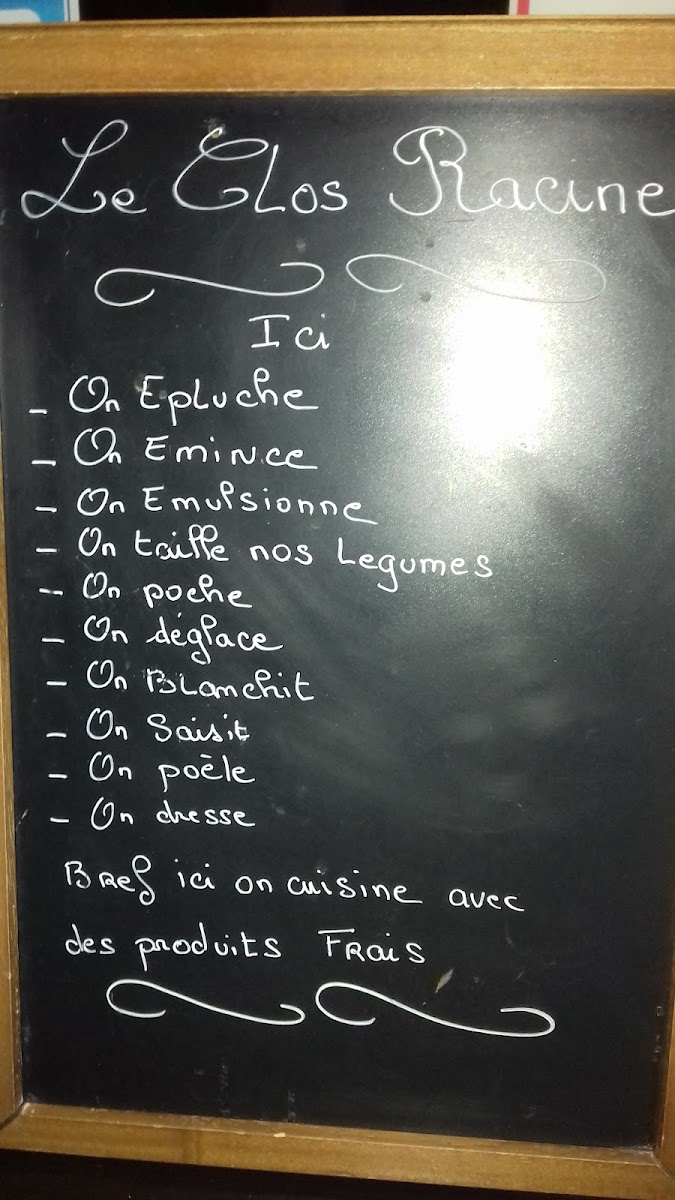 Le Clos Racine
Ici
- On Epluche
- On Emince
- On Emulsionne
- On taille nos Legumes
- On poche
- On déglace
- On Blanchit
- On Saisit
- On poèle
- On dresse
Bref ici on cuisine avec
des produits Frais